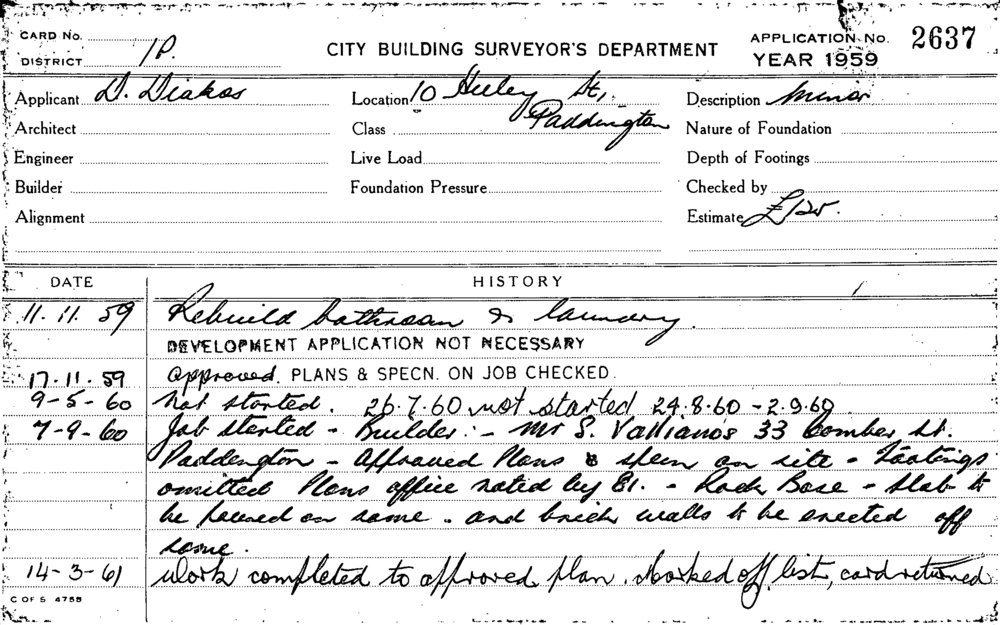 CARD No.
DISTRICT 1P.
CITY BUILDING SURVEYOR'S DEPARTMENT
APPLICATION No. 2637
YEAR 1959
Applicant D. Diakos
Location 10 Heeley St,
Paddington
Description Minor
Architect
Class
Nature of Foundation
Engineer
Live Load
Depth of Footings
Builder
Foundation Pressure
Checked by
Alignment
Estimate £125.
DATE HISTORY
11.11.59 Rebuild bathroom & laundry.
DEVELOPMENT APPLICATION NOT NECESSARY
17.11.59 Approved. PLANS & SPECN. ON JOB CHECKED.
9-5-60 Not started. 26.7.60 not started 24.8.60 - 2.9.60
7-9-60 Job started - Builder:- Mr S. Vallianos 33 Comber St.
Paddington - Approved Plans & specn on site - Footings
omitted Plans office noted by E1. - Rock Base - slab to
be poured on same - and brick walls to be erected off
same.
14-3-61 Work completed to approved plan. Marked off list, card returned
C OF S 4755